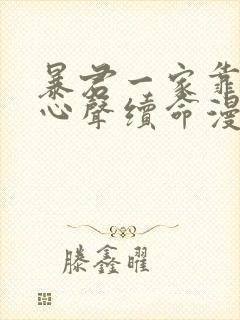 暴君一家靠
心聲續命漫
滕鑫曜